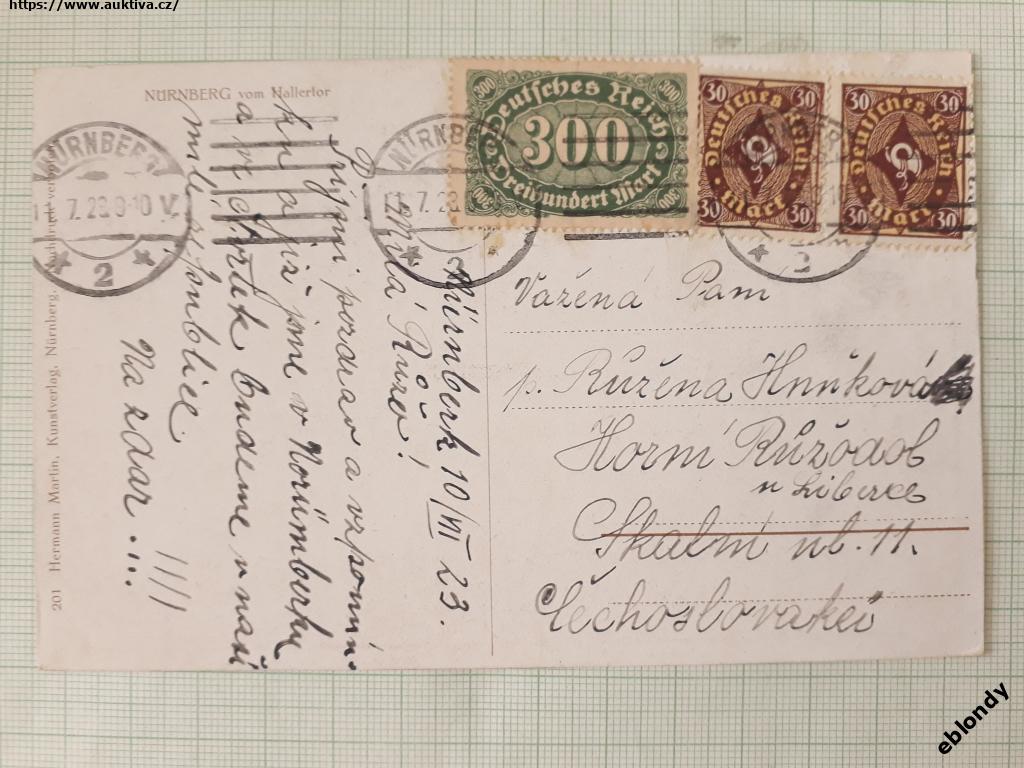 https://www.auktiva.cz/
NÜRNBERG vom Hallertor
300
300
Deutsches Reich
300
Dreihundert Mark
300
300
30
30
Deutsches Reich
Mark
30
30
30
30
Deutsches Reich
Mark
30
30
NÜRNBERG
7.23.8-10 V.
* 2 *
NÜRNBERG
7.23
*
2
Nürnberk 10/VII 23.
Drahá Růžo!
Přijmi pozdrav a vzpomín-
ku a již jsme v Norümberku
a ve čtvrtek budeme v naší
milé
Na zdar !!!
Vážená Paní
p. Růžena Hnňková
Horní Růžodol
u Liberce
Skalní ul. 11.
Čechoslovakei
201 Hermann Martin, Kunstverlag, Nürnberg. Nachdruck verboten
eblondy